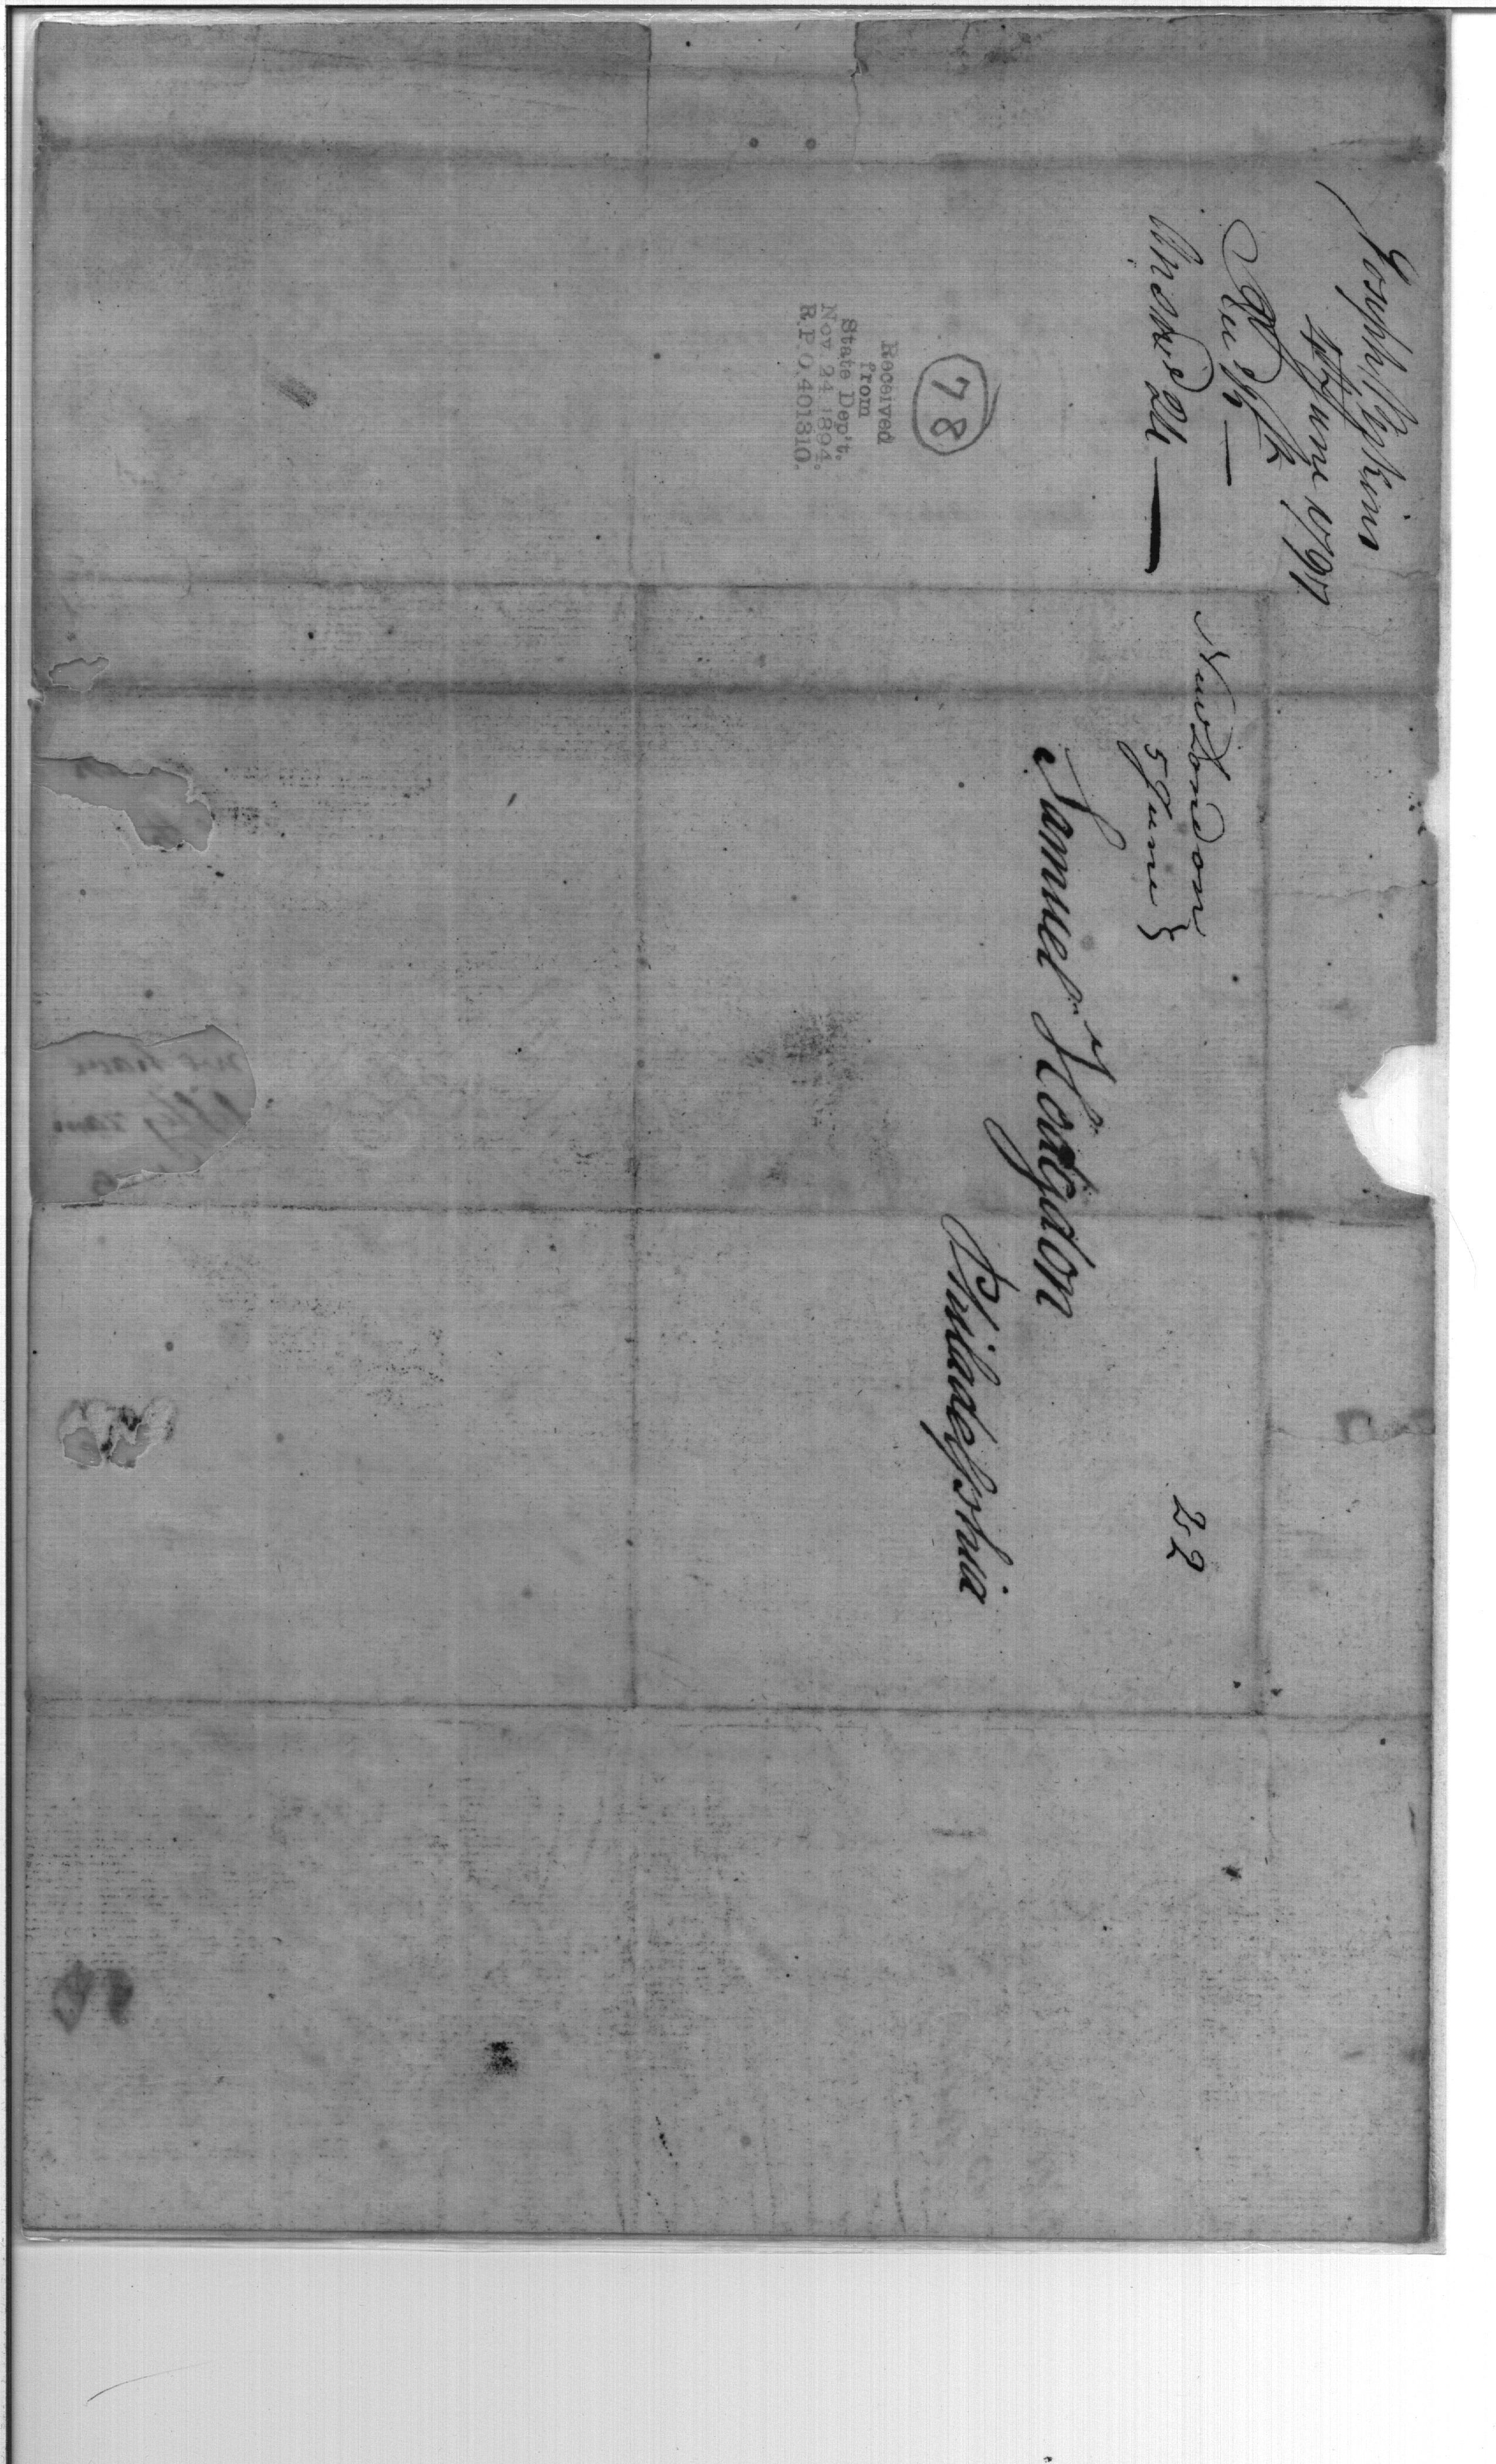 Joseph Hopkins
4th June 1797
Recd 9th —
Answd 21 —
78
Received
from
State Dep't.
Nov. 24 1894.
R.P.O. 401310.
New London
5 June }
22
Samuel Hodgdon
Philadelphia